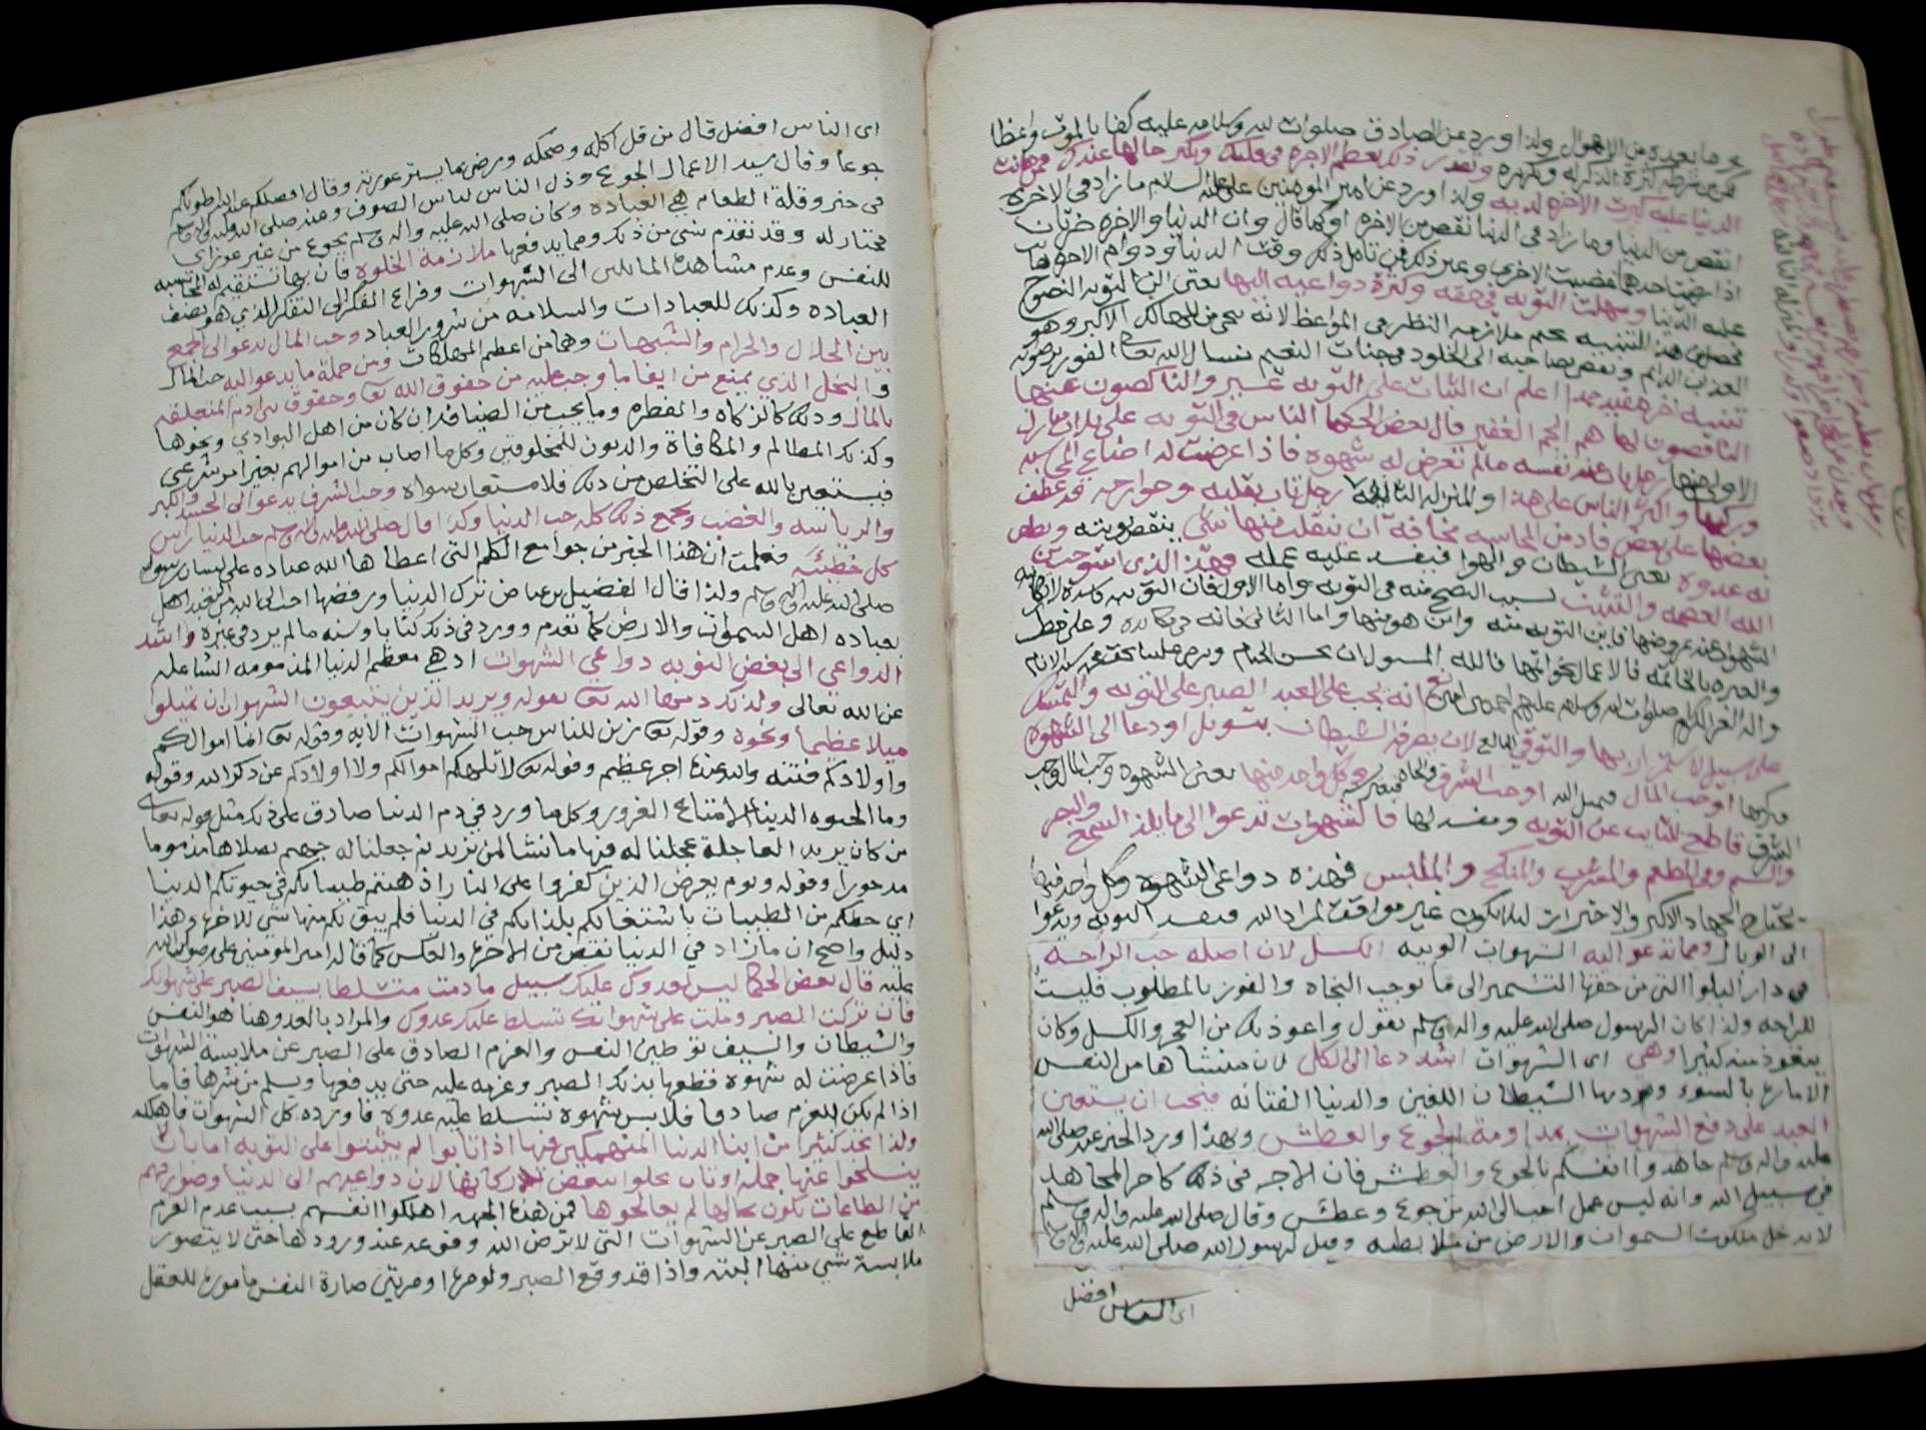 وما بعده من الاهوال ولذا ورد عن الصادق صلوات الله وسلامه عليه كفا بالموت واعظا
فمن شرطه كثرة الذكر له وتكريره وبقدر ذلك يعظم الاجره في قلبك ويكبر حالها عندك فمن هانت
الدنيا عليه كبرت الاخره لديه ولذا ورد عن امير المومنين عليه السلام ما زاد في الاخره
انقص من الدنيا وما زاد في الدنيا نقص من الاخره او كما قال وان الدنيا والاخره ضرتان
اذا رضيت احدهما غضبت الاخرى وغير ذلك فمن تامل ذلك وقت الدنيا ودوام الاخره هانت
عليه الدنيا وسهلت التوبه في حقه وكثرة دواعيه اليها يعني الى التوبه النصوح
فحصلى هذا التنبيه تحتم ملازمه النظر في المواعظ لانه ينجي من المهالك الاكبر وهو
العذاب الدائم ويفضي بصاحبه الى الخلود في جنات النعيم نسال الله تعالى الفوز برضوانه
تنبيه اخر مفيد جدا اعلم ان الثبات على التوبه عسير والناكصون عنها
الناقضون لها هم الجم الغفير قال بعض الحكما الناس في التوبه على ثلاث منازل
الاولى منها رجل تاب عند نفسه مالم تعرض له شهوه فاذا عرضت له اضاع المحاسبه
وركبها واكثر الناس على هذا والمنزله الثانيه رجل تاب بقلبه وجوارحه قد عطف
بعضها على بعض قاد من المحاسبه مخافة ان ينفلت منها شي ينقض توبته ويطمع
به عدوه يعني الشيطان والهوا فيفسد عليه عمله فهذا الذي استوجب من
الله العصمه والتثبيت لسبب النصح منه في التوبه واما الاول فان التوبه كاسده لارتكابه
الشهوه عند عروضها فاين التوبه منه واين هو منها واما الثاني فانه في مكابده وعلى خطر
والعبره بالخاتمه فالاعمال بخواتمها فالله المسول ان يحسن الختام ويرحم علينا بحق محمد سيد الانام
واله الغر الكرام صلوات الله وسلامه عليهم اجمعين امين انه يجب على العبد الصبر على التوبه والتمسك
على سبيل الاستمرار بها والتوقي البالغ لان يصرفه الشيطان بتسويل او دعا الى الشهوه
فيركبها او حب المال فيميل اليه او حب الشرف والجاه فيغيره وكل واحد منها يعني الشهوه وحب المال وحب
الشرف قاطع للتايب عن التوبه ومفسد لها فالشهوات تدعوا الى مايلذ السمع والبصر
والشم وفي المطعم والمشرب والمنكح والملبس فهذه دواعي الشهوه وكل واحد فيها
يحتاج الجهاد الاكبر والاختبرات ليلا يكون غير موافقت لمراد الله فيفسد التوبه ويدعوا
الى الوبال ومما تدعو اليه الشهوات الوبيه الكسل لان اصله حب الراحه
في دار البلوا التي من حقها التشمير الى ما يوجب النجاه والفوز بالمطلوب فليست
للراحه ولذا كان الرسول صلى الله عليه واله وسلم يقول واعوذ بك من العجز والكسل وكان
يتعوذ منه كثيرا وهي اي الشهوات اشد دعا الى الكل لان منشاها من النفس
الامارة بالسوء ومددها الشيطان اللعين والدنيا الفتانه فيجب ان يستعين
العبد على دفع الشهوات بمداومة الجوع والعطش وبهذا ورد الخبر عنه صلى الله
عليه واله وسلم جاهدوا انفسكم بالجوع والعطش فان الاجر في ذلك كاجر المجاهد
في سبيل الله وانه ليس عمل احب الى الله من جوع وعطش وقال صلى الله عليه واله وسلم
لا يدخل ملكوت السموات والارض من ملا بطنه وقيل لرسول الله صلى الله عليه واله وسلم
اى الناس افضل
اى الناس افضل قال من قل اكله وضحكه ورضي بما يستر عورته وقال افضلكم عند الله اطولكم
جوعا وقال سيد الاعمال الجوع وذل الناس لباس الصوف وعنه صلى الله عليه واله وسلم
في خبر وقلة الطعام هي العباده وكان صلى الله عليه واله وسلم يجوع من غير عوز اي
مختار له وقد تقدم شي من ذلك ومما يدفعها ملازمة الخلوه فان بها تستقيم له المحاسبه
للنفس وعدم مشاهدة المايلين الى الشهوات وفراغ الفكر الى التفكر الذي هو نصف
العباده وكذلك للعبادات والسلامه من شرور العباد وحب المال يدعو الى الجمع
بين الحلال والحرام والشبهات وهما من اعظم المهلكات ومن جملة ما يدعو اليه حب المال
والبخل الذي يمنع من ايفا ما وجب عليه من حقوق الله تعالى وحقوق بني ادم المتعلقه
بالمال وذلك كالزكاه والفطره وما يجب من الضيافه ان كان من اهل البوادي ونحوها
وكذلك المظالم والمكافاة والديون للمخلوقين وكل ما اصاب من اموالهم بغير امر شرعي
فيستعين بالله على التخلص من ذلك فلا مستعان سواه وحب الشرف يدعو الى الحسد والكبر
والرياسه والغضب ويجمع ذلك كله حب الدنيا وكذا قال صلى الله عليه واله وسلم حب الدنيا راس
كل خطيئه فعلمت ان هذا الخبر من جوامع الكلم التي اعطاها الله عباده على لسان رسوله
صلى الله عليه واله وسلم ولذا قال الفضيل بن عياض ترك الدنيا ورفضها احب الى الله من التعبد
بعباده اهل السموات والارض كما تقدم وورد في ذلك كتابا وسنه مالم يرد في غيره واشد
الدواعي الى بغض التوبه دواعي الشهوات اذ هي معظم الدنيا المذمومه الشاغله
عن الله تعالى ولذلك ذمها الله تعالى بقوله ويريد الذين يتبعون الشهوات ان تميلوا
ميلا عظيما ونحوه وقوله تعالى زين للناس حب الشهوات الايه وقوله تعالى انما اموالكم
واولادكم فتنه والله عنده اجر عظيم وقوله تعالى لا تلهكم اموالكم ولا اولادكم عن ذكر الله وقوله
وما الحيوه الدنيا الا متاع الغرور وكل ما ورد في ذم الدنيا صادق على ذلك مثل قوله تعالى
من كان يريد العاجلة عجلنا له فيها ما نشا لمن نريد ثم جعلنا له جهنم يصلاها مذموما
مدحورا وقوله ويوم يعرض الذين كفروا على النار اذهبتم طيباتكم في حيوتكم الدنيا
اي حظكم من الطيبات باشتغالكم بلذاتكم في الدنيا فلم يبق لكم منها شي للاخره وهذا
دليل واضح ان مازاد في الدنيا نقص من الاخره والعكس كما قال امير المومنين علي رضوان الله
عليه قال بعض الحكما ليس لعدوك عليك سبيل ما دمت متسلطا بسيف الصبر على شهوتك
فان تركت الصبر وملت على شهواتك تسلط عليك عدوك والمراد بالعدو هنا هو النفس
والشيطان والسيف توطين النفس والعزم الصادق على الصبر عن ملابسة الشهوات
فاذا عرضت له شهوة قطعها بذكر الصبر وعزمه عليه حتى يدفعها ويسلم من شرها فاما
اذا لم يكن للعزم صادقا فلابس شهوة تسلط عليه عدوه فاورده كل الشهوات فاهلكه
ولذا تجد كثيرا من ابنا الدنيا المنهمكين فيها اذا تابوا لم يثبتوا على التوبه اما بان
ينسلخوا عنها جملة او بان يخلوا ببعض اركانها لان دواعيهم الى الدنيا وصوارفهم
من الطاعات تكون بحالها لم يعالجوها فمن هذه الجهه اهلكوا انفسهم بسبب عدم العزم
القاطع على الصبر عن الشهوات التي لا ترضي الله وفوعه عند ورودها حتى لا يتصور
ملابسة شي منها البته واذا قد وقع الصبر ولو مرة او مرتين صارة النفس مامورة للعقل